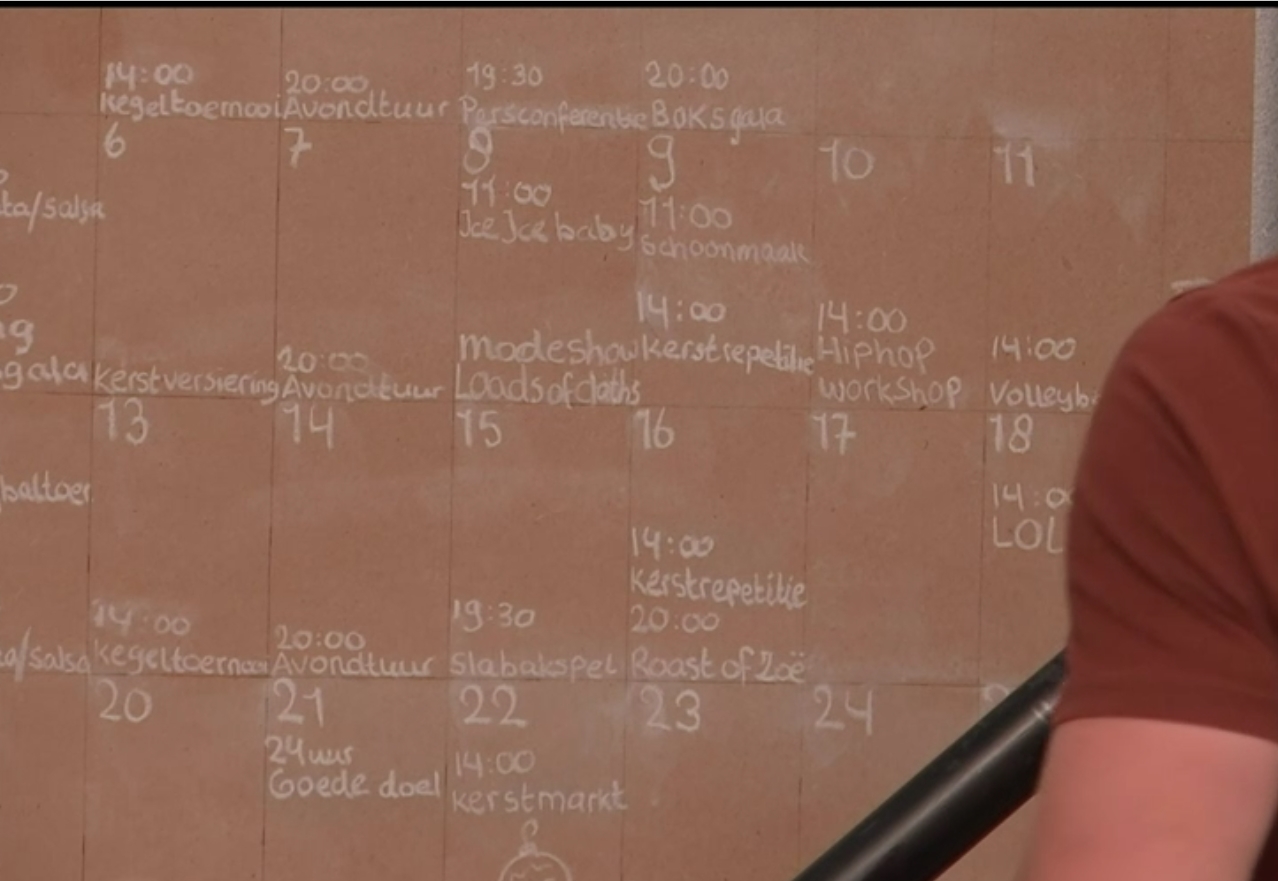 14:00
Kegeltoernooi
20:00
Avondtuur
19:30
Persconferentie
20:00
Boksgala
6
7
8
11:00
Ice Ice baby
9
11:00
Schoonmaak
10
11
ta/salsa
gala
Kerstversiering
20:00
Avondtuur
Modeshow
Loads of cloths
14:00
Kerstrepetitie
14:00
Hiphop
Workshop
14:00
Volleyb
13
14
15
16
17
18
14:00
LOL
baltoer
/salsa
14:00
Kegeltoernooi
20:00
Avondtuur
19:30
Slabakspel
14:00
Kerstrepetitie
20:00
Roast of Zoë
20
21
24 uur
Goede doel
22
14:00
Kerstmarkt
23
24